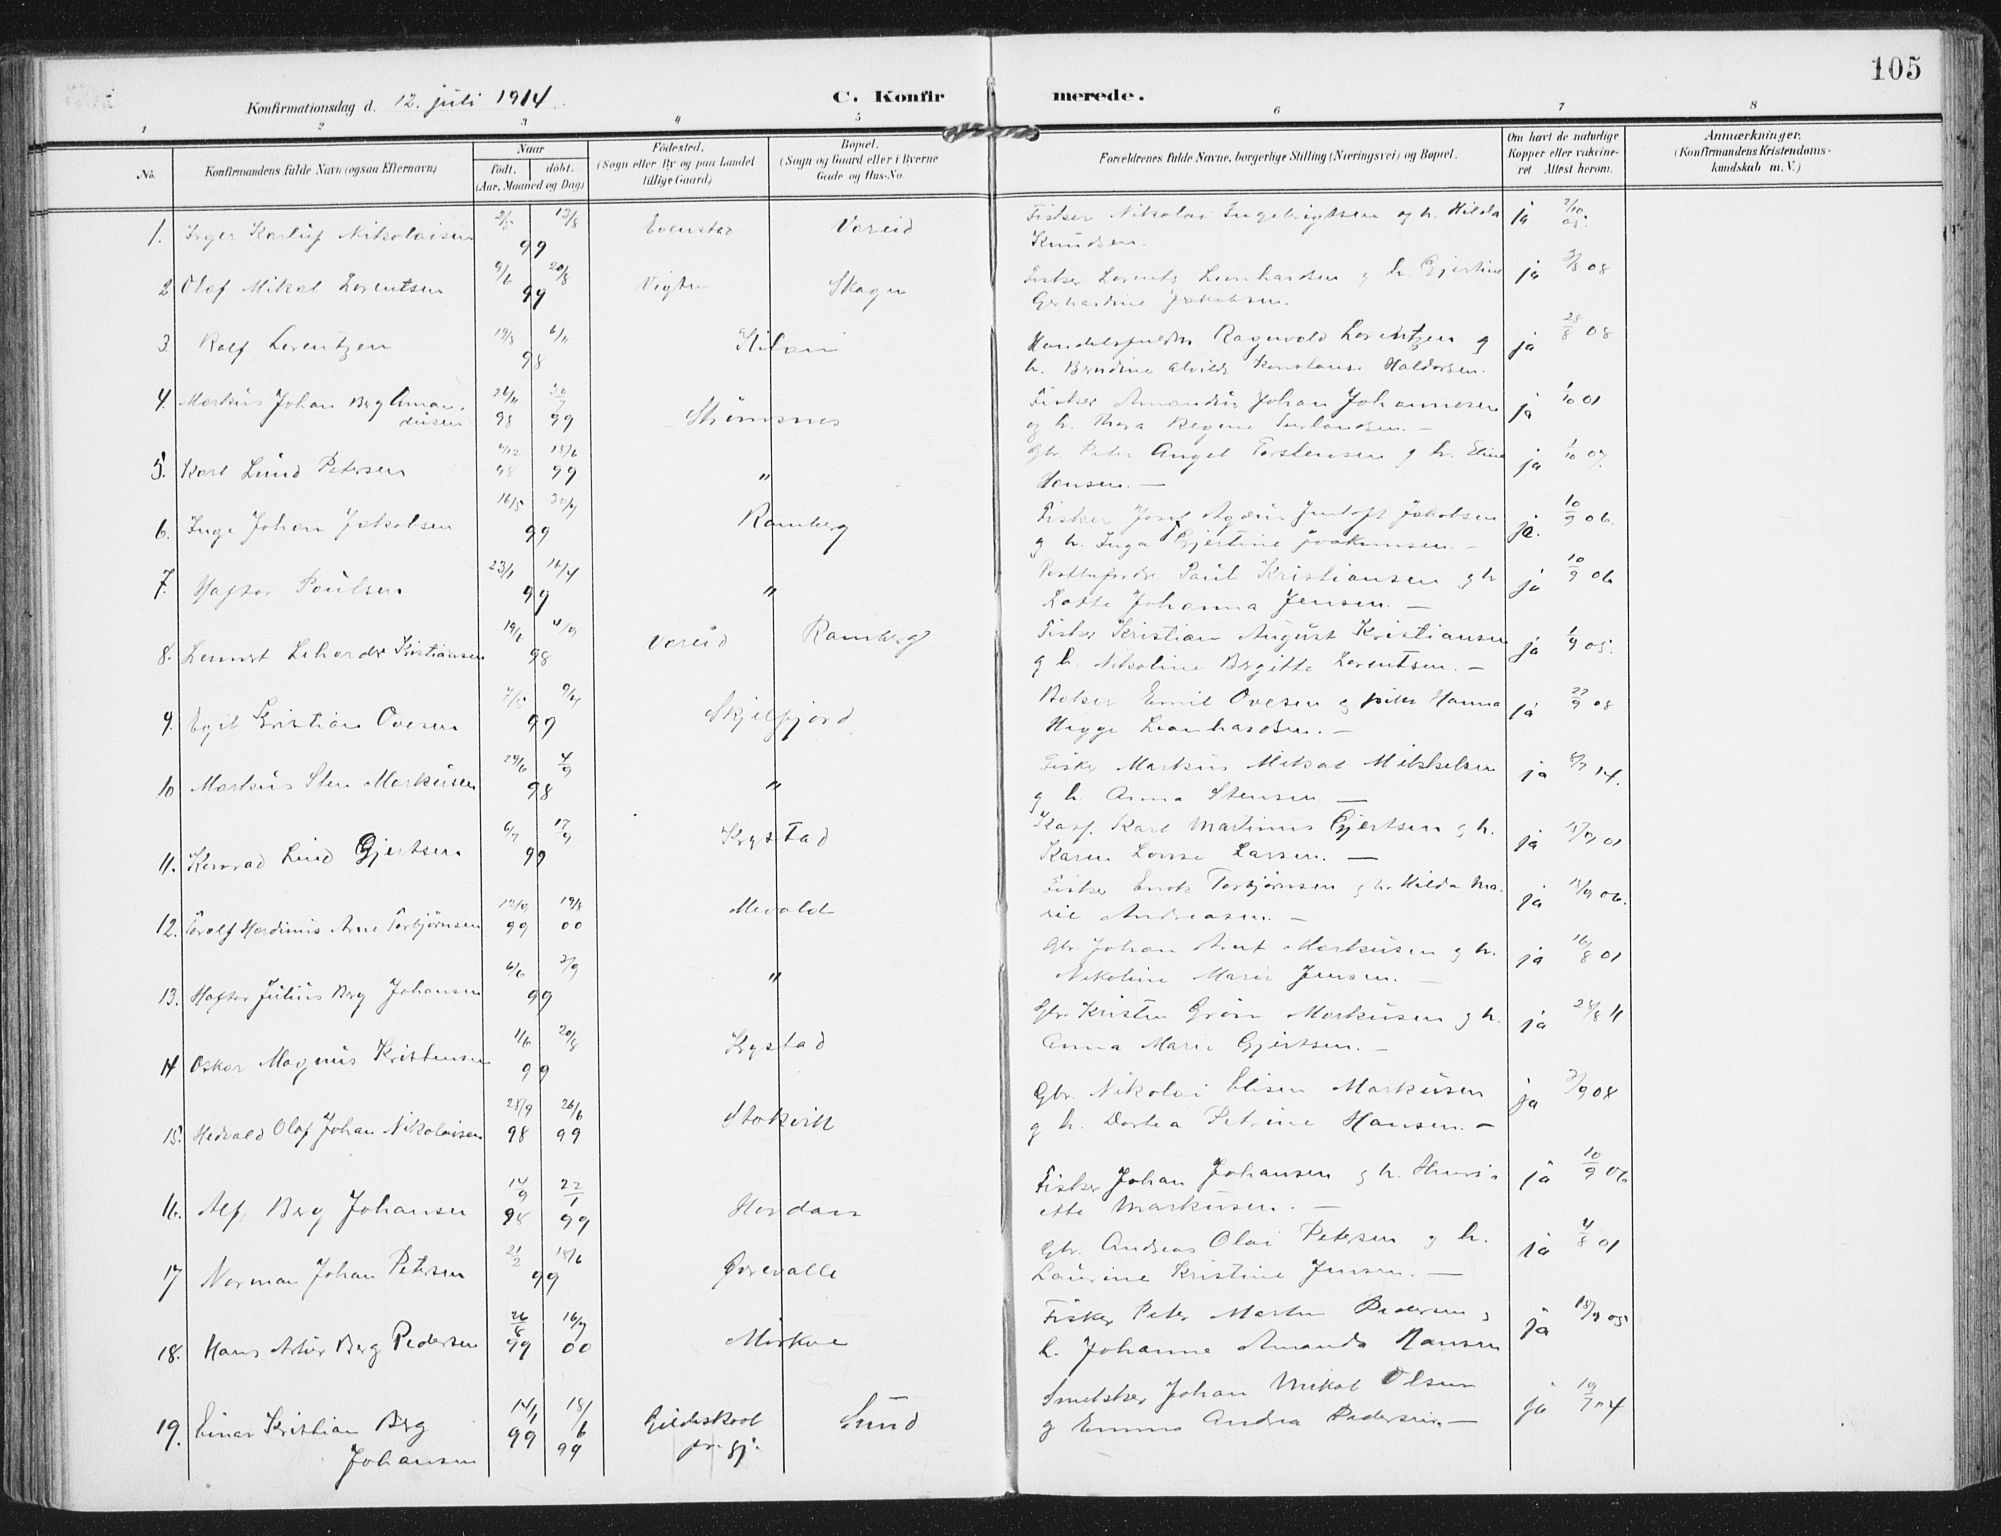 105
Konfirmationsdag d. 12. juli 1914
C. Konfir merede.
1 2 3 4 5 6 7 8
No.
Konfirmandens fulde Navn (ogsaa Efternavn)
Naar
født. døbt.
(Aar, Maaned og Dag)
Fødested.
(Sogn eller By og paa Landet
tillige Gaard)
Bopæl.
(Sogn og Gaard eller i Byerne
Gade og Hus-No.
Forældrenes fulde Navne, borgerlige Stilling (Næringsvei) og Bopæl.
Om havt de naturlige
Kopper eller vakcine-
ret Attest herom.
Anmærkninger.
(Konfirmandens Kristendoms-
kundskab m. V.)
1. Nikolaisen 2/5 13/8 Evenstad Vareid Fisker Nikolai Ingebrigtsen og h. Hilda ja 2/10
99 Knudsen. 05.
2 Olaf Mikal Lorentsen 9/6 20/8 Vigten Skagen Fisker Lorents Leonhardsen g h. Gjertine ja 3/8 08
99 Gerhardine Jakobsen.
3. Rolf Lorentzen 19/8 6/11 Ragnvald Lorentzen g ja 28/8 08
98 h. Konstanse Haldorsen.
4. Markus Johan Berg Aman- 26/11 Strømsnes Fisker Amandus Johan Johannesen ja 1/10 01
dusen 98 99 og h. Thora Regine
5. Karl Lund Petersen 4/12 18/6 " Gbr. Peter Angel Torstensen g h. Eline ja 1/10 07.
98 99 Hansen. —
6. Inge Johan Jakobsen 16/5 30/7 Ramberg Fisker Jakobsen ja. 10/9 06.
99 g h. Inga Gjertine Joakimsen. —
7. Haftor Paulsen 23/1 16/4 " Paul Kristiansen g h ja 10/9 06
99 Lotte Johanna Jensen. —
8. Kristiansen 19/6 4/9 Vareid Ramberg Fisker Kristian August Kristiansen ja 1/9 05.
98 g h. Nikoline Bergitte Lorentsen. —
9. Egil Kristian Ovesen 7/5 9/7 Skjelfjord Emil Ovesen g Hanna ja 22/9 08
99 Leonhardsen. —
10 Markus Sten Markusen 29/6 4/9 " Fisker Markus Mikal Mikkelsen ja 8/7 14.
98 g h. Anna Stensen. —
11. Konrad Lund Gjertsen. 6/7 17/9 Krystad Karl Martinus Gjertsen g h. ja 01
99 Karen Lovise Larsen. —
12. Torolf Hardinus Arne Torbjørnsen 12/9 19/8 Mevold Fisker Enok Torbjørnsen g h. Hilda Ma- ja 18/9 06.
99 00 rie Andreasen. —
13. Haftor Julius Berg Johansen 6/6 3/9 " Gbr. Johan Arnt Markusen g h. ja 16/8 01
99 Nikoline Marie Jensen. —
14 Oskar Magnus Kristensen 11/6 20/8 Krystad Gbr. Kristen Grøn Markusen g h. ja 24/8 11
99 Anna Marie Gjertsen. —
15. Hedvald Olaf Johan Nikolaisen 28/9 26/6 Stokvik Gbr. Nikolai Elisen Markusen ja 3/9 08
98 99 g h. Dortea Petrine Hansen. —
16. Alf Berg Johansen 14/9 22/1 Hordan Fisker Johan Johansen g h. Henri- ja 10/9 06
98 99 ette Markusen. —
17 Norman Johan Petersen 21/2 18/6 Ørevalle Gbr. Andreas Olai Petersen g h. ja 4/8 01
99 Laurine Kristine Jensen. —
18. Hans Artur Berg Pedersen 26/8 16/9 Mørkve Fisker Peter Martin Pedersen g ja 18/9 05
99 00 h. Johanne Amanda Hansen
19. Einar Kristian Berg 14/1 18/6 Gildeskaal Sund Johan Mikal Olsen ja 19/7 04
Johansen 99 99 pr. gj. g Emma Andrea Pedersen. —